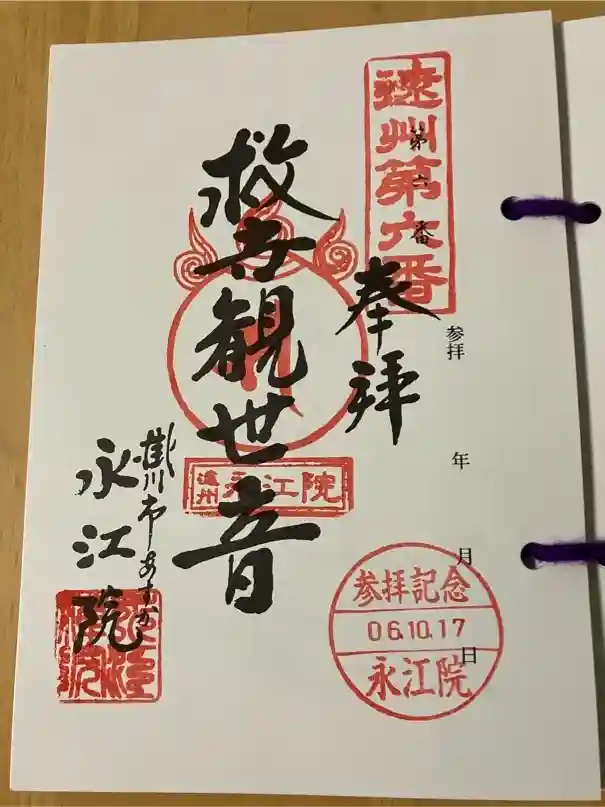 遠州第六番
第六番
奉拝
参拝
年
月
日
救世観世音
遠州
永江院
掛川市
永江院
参拝記念
06.10.17
永江院